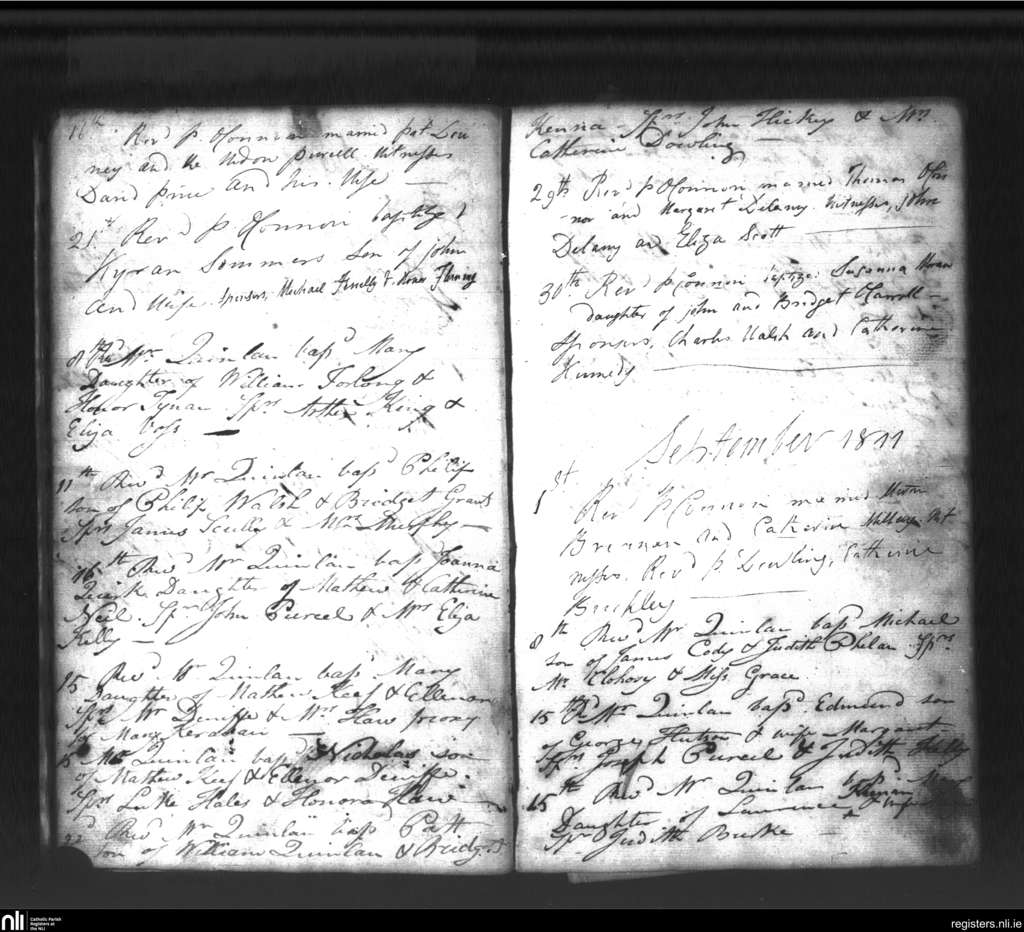 16th Revd P. OConnor married Pat.
ney and the Widow Purcell. Witnesses
David Price and his Wife
21st Revd P OConnor baptized
Kyran Sommers Son of John
and Wife. Sponsors, Michael &
8th Mr Quinlan bapd Mary
Daughter of William Forlong &
Honor Tynan Sprs King &
Eliza
11th Revd Mr Quinlan bapd Philip
son of Philip Walsh & Bridget Grant
Sprs James Scully & Mrs Murphy
16th Revd Mr Quinlan bapd Joanna
Quirk Daughter of Mathew & Catherine
Neil. Sprs John Purcel & Mrs Eliza
Kelly
15 Revd Mr Quinlan bapd Mary
Daughter of Mathew Keef & Ellenor
Sprs Mr Deniffe & Mrs Haw proxy
for Mary
15 Mr Quinlan bapd Nicholas son
of Mathew Keef & Ellenor Deniffe.
Sprs Luke Hales & Honora Haw
22d Revd Mr Quinlan bapd Patt
son of William Quinlan & Bridget
Kenna Sprs John Hickey & Mrs
Catherine Dowling
29th Revd P OConnor married Thomas OCon
nor and Margaret Delany. Witnesses, John
Delany and Eliza Scott
30th Revd P OConnor baptized Susanna
daughter of John and Bridget OCarroll
Sponsors, Charles Walsh and Catherine
Kennedy
September 1811
1st
Revd P OConnor married
Brennan and Catherine Wit
nesses. Revd P. Dowling, Catherine
8th Revd Mr Quinlan bapd Michael
son of James Cody & Judith Phelan Sprs
Mr & Miss Grace
15th Rd Mr Quinlan bapd Edmund son
of George & wife Margaret
Sprs Joseph Purcel & Judith Kelly
15th Revd Mr Quinlan bapd
Daughter of Lawrence & wife
Spr Judith Burke
nli
Catholic Parish
Registers at
the NLI
registers.nli.ie